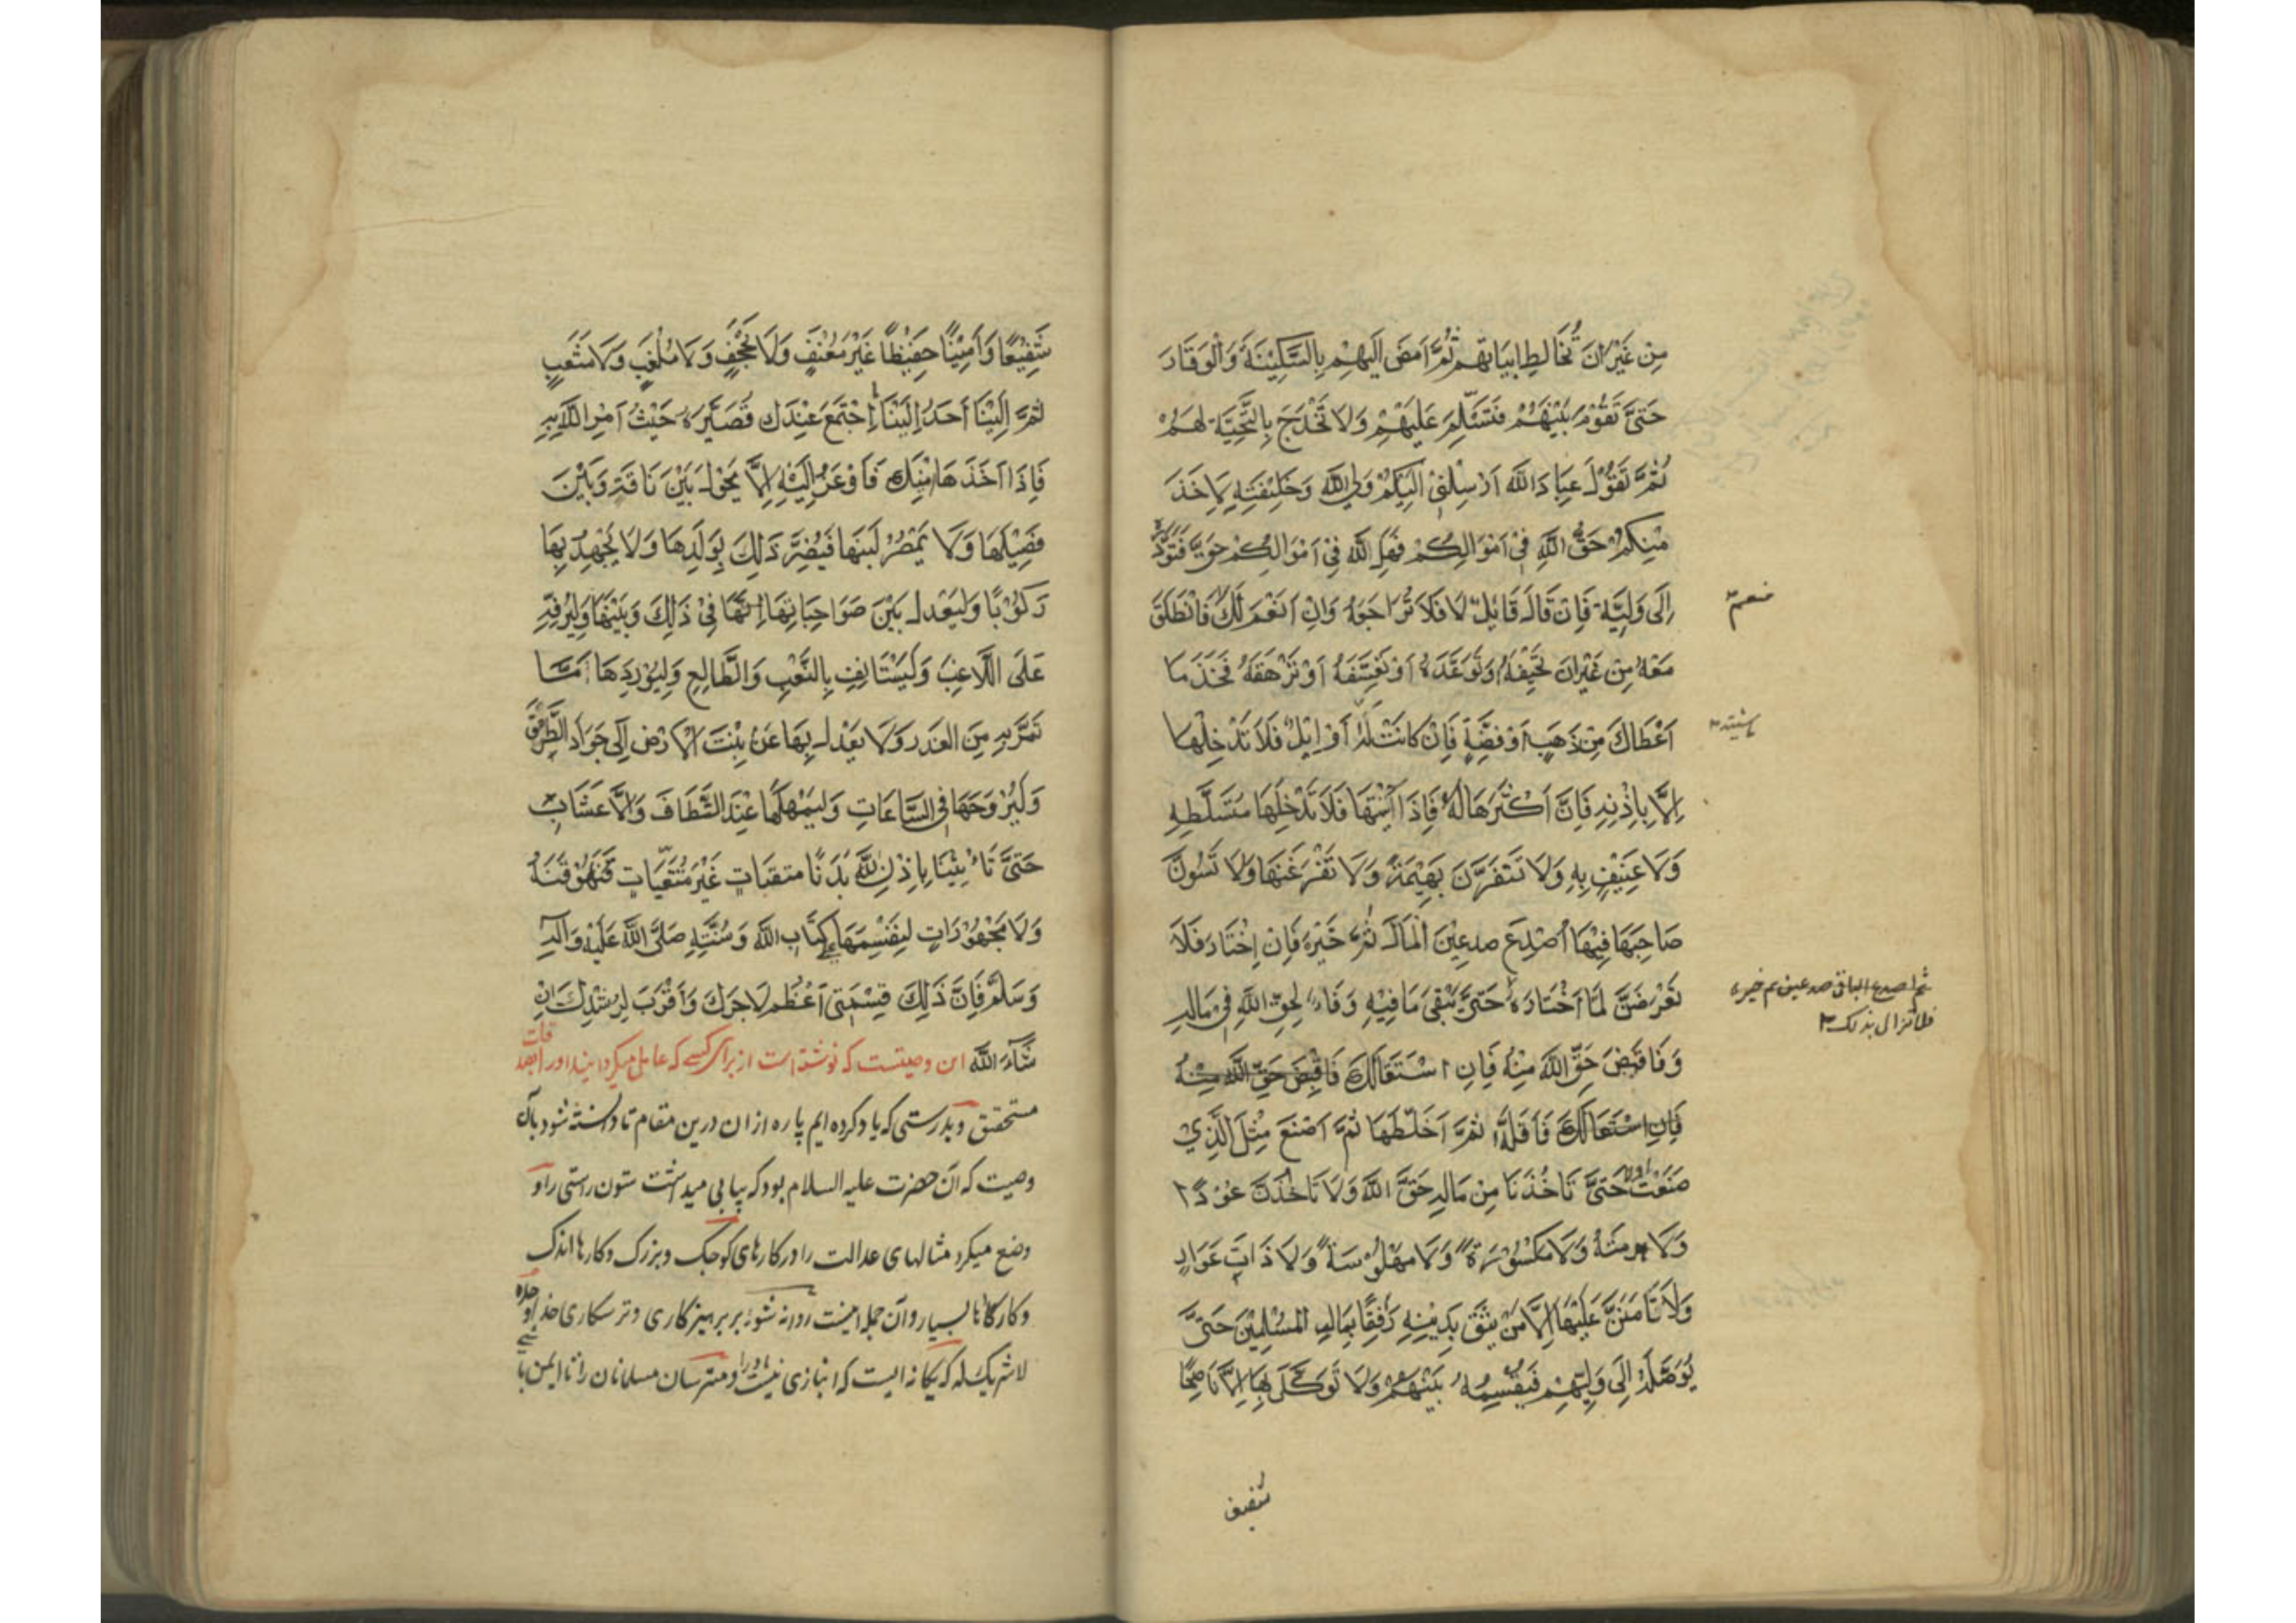 مِنْ غَيْرِ اَنْ تُخَالِطَ اَبْيَاتَهُمْ ثُمَّ اَمْضِ اِلَيْهِمْ بِالسَّكِيْنَةِ وَالْوَقَارِ
حَتّٰى تَقُوْمَ بَيْنَهُمْ فَتُسَلِّمَ عَلَيْهِمْ وَلَا تُخْدِجْ بِالتَّحِيَّةِ لَهُمْ
ثُمَّ تَقُوْلَ عِبَادَ اللّٰهِ اَرْسَلَنِيْ اِلَيْكُمْ وَلِيُّ اللّٰهِ وَخَلِيْفَتُهٗ لِاٰخُذَ
مِنْكُمْ حَقَّ اللّٰهِ فِيْ اَمْوَالِكُمْ فَهَلْ لِلّٰهِ فِيْ اَمْوَالِكُمْ حَقٌّ فَتُؤَدُّوْهُ
اِلٰى وَلِيِّهٖ فَاِنْ قَالَ قَائِلٌ لَا فَلَا تُرَاجِعْهُ وَاِنْ اَنْعَمَ لَكَ فَانْطَلِقْ
منعم
مَعَهٗ مِنْ غَيْرِ اَنْ تُخِيْفَهٗ وَتُوْعِدَهٗ اَوْ تَعْسِفَهٗ اَوْ تُرْهِقَهٗ فَخُذْ مَا
اَعْطَاكَ مِنْ ذَهَبٍ اَوْ فِضَّةٍ فَاِنْ كَانَتْ لَهٗ اَوْ اِبِلٌ فَلَا تَدْخُلْهَا
ماشية
اِلَّا بِاِذْنِهٖ فَاِنَّ اَكْثَرَهَا لَهٗ فَاِذَا اَتَيْتَهَا فَلَا تَدْخُلْهَا مُتَسَلِّطِهٖ
وَلَا عَنِيْفٍ بِهٖ وَلَا تُنَفِّرَنَّ بَهِيْمَةً وَلَا تُفْزِعَنَّهَا وَلَا تَسُوْءَنَّ
صَاحِبَهَا فِيْهَا اُصْدَعِ صدعين الْمَالَ ثُمَّ خَيِّرْهُ فَاِنْ اِخْتَارَ فَلَا
تَعْرِضَنَّ لِمَا اخْتَارَهٗ حَتّٰى يَبْقٰى مَا فِيْهِ وَفَاءٌ لِحَقِّ اللّٰهِ فِيْ مَالِهٖ
ثم اصدع الباقي صدعين ثم خيره
فلا تزال بذلك
وَفَاقْبِضْ حَقَّ اللّٰهِ مِنْهُ فَاِنِ اسْتَقَالَكَ فَاقْبِضْ حَقَّ اللّٰهِ مِنْهُ
فَاِنِ اسْتَقَالَكَ فَاَقِلْهُ ثُمَّ اَخْلِطْهَا ثُمَّ اصْنَعْ مِثْلَ الَّذِيْ
صَنَعْتَ اولا حَتّٰى تَاْخُذَنَا مِنْ مَالِهٖ حَقَّ اللّٰهِ وَلَا تَاْخُذَنَّ عَوْدًا
وَلَا هرمَةً وَلَا مَكْسُوْرَةً وَلَا مَهْلُوْسَةً وَلَا ذَاتَ عَوَارٍ
وَلَا تَاْمَنَنَّ عَلَيْهَا اِلَّا مَنْ يَثِقُ بِدِيْنِهٖ رَفِقًا بِمَالِ الْمُسْلِمِيْنَ حَتّٰى
يُوَصِّلَهٗ اِلٰى وَلِيِّهِمْ فَيَقْسِمَهٗ بَيْنَهُمْ وَلَا تُوَكِّلْ بِهَا اِلَّا نَاصِحًا
شفيق
شَفِيْعًا وَاَمِيْنًا حَفِيْظًا غَيْرَ مُعْنِفٍ وَلَا مُجْحِفٍ وَلَا مُلْغِبٍ وَلَا مُتْعِبٍ
ثُمَّ اِلَيْنَا اَحْدِرْ اِلَيْنَا مَا اِجْتَمَعَ عِنْدَكَ نُصَيِّرْهُ حَيْثُ اَمَرَ اللّٰهُ بِهٖ
فَاِذَا اَخَذَهَا مِنْكَ فَاَوْعِزْ اِلَيْهِ اَلَّا يَحُوْلَ بَيْنَ نَاقَةٍ وَبَيْنَ
فَصِيْلِهَا وَلَا يَمْصُرَ لَبَنَهَا فَيُضِرَّ ذٰلِكَ بِوَلَدِهَا وَلَا يُجْهِدَ بِهَا
رَكُوْبًا وَلْيَعْدِلْ بَيْنَ صَوَاحِبَاتِهَا اِنَّهَا فِيْ ذٰلِكَ وَبَيْنَهَا وَلْيُرَفِّهْ
عَلَى اللَّاغِبِ وَلْيَسْتَانِفْ بِالنَّقْبِ وَالظَّالِعِ وَلْيُوْرِدْهَا مَا
تَمُرُّ بِهٖ مِنَ الْغُدَرِ وَلَا يَعْدِلْ بِهَا عَنْ نَبْتِ الْاَرْضِ اِلٰى جَوَادِ الطُّرُقِ
وَلْيُرَوِّحْهَا فِي السَّاعَاتِ وَلْيُمْهِلْهَا عِنْدَ النِّطَافِ وَالْاَعْشَابِ
حَتّٰى تَاْتِيَنَا بِاِذْنِ اللّٰهِ بُدْنًا منقيات غَيْرَ مُتْعَبَاتٍ
وَلَا مَجْهُوْدَاتٍ لِنَقْسِمَهَا عَلٰى كِتَابِ اللّٰهِ وَسُنَّتِهٖ صَلَّى اللّٰهُ عَلَيْهِ وَاٰلِهٖ
وَسَلَّمَ فَاِنَّ ذٰلِكَ اَعْظَمُ لِاَجْرِكَ وَاَقْرَبُ لِرُشْدِكَ اِنْ
شَآءَ اللّٰهُ این وصیتست که نوشته است از برای کسی که عامل میکردانید او را بر صدقات
مستحقق وبدرستی که یاد کرده ایم پاره از ان درین مقام تا دانسته شود بآن
وصیت که آن حضرت علیه السلام بود که بپا می میداشت ستون راستی را و
وضع میکرد مثالهای عدالت را در کارهای کوچک وبزرک وکارها اندک
وکارها بسیار وآن جمله اینست روانه شو بر پرهیزکاری وترسکاری خدا وحده
لا شریک له که یکانه ایست که انبازی نیست او را ومترسان مسلمانان را تا ایمن باشی